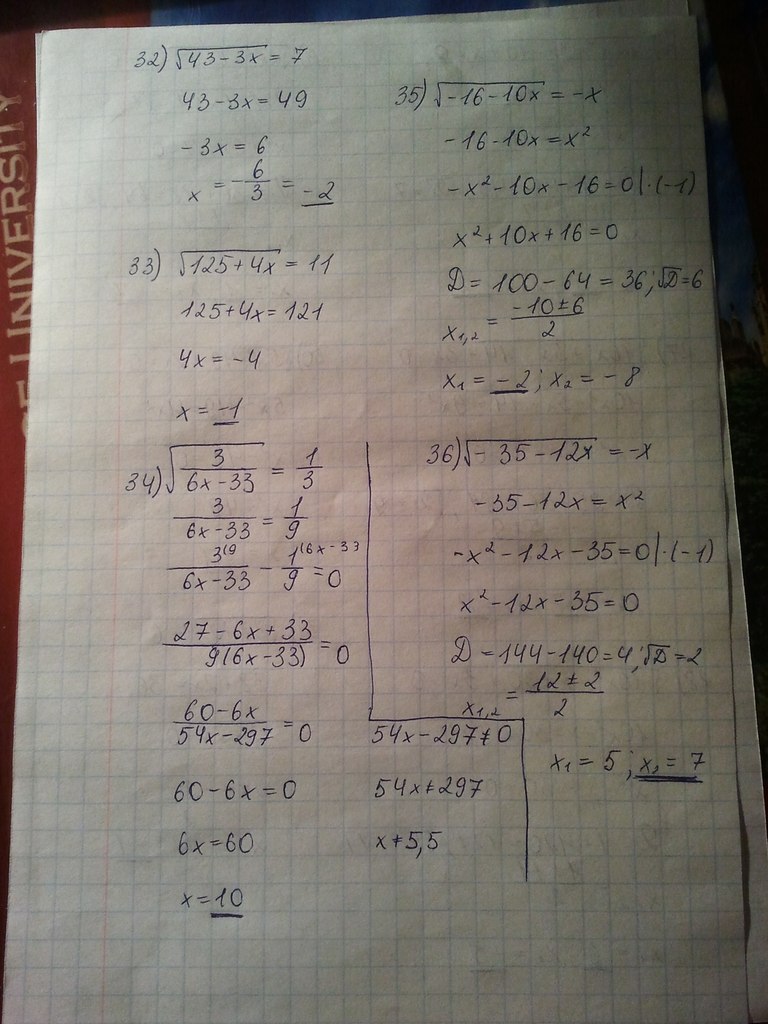 32) √(43-3x) = 7
43-3x = 49
-3x = 6
x = -6/3 = -2
33) √(125+4x) = 11
125+4x = 121
4x = -4
x = -1
34) √(3/(6x-33)) = 1/3
3/(6x-33) = 1/9
3(9/(6x-33) - 1(6x-33/9 = 0
(27-6x+33)/(9(6x-33)) = 0
(60-6x)/(54x-297) = 0
60-6x = 0
6x = 60
x = 10
54x-297≠0
54x≠297
x≠5,5
35) √(-16-10x) = -x
-16-10x = x²
-x²-10x-16 = 0|·(-1)
x²+10x+16 = 0
D = 100-64 = 36; √D = 6
x₁,₂ = (-10±6)/2
x₁ = -2; x₂ = -8
36) √(-35-12x) = -x
-35-12x = x²
-x²-12x-35 = 0|·(-1)
x²-12x-35 = 0
D = 144-140 = 4; √D = 2
x₁,₂ = (12±2)/2
x₁ = 5; x₂ = 7
OF UNIVERSITY